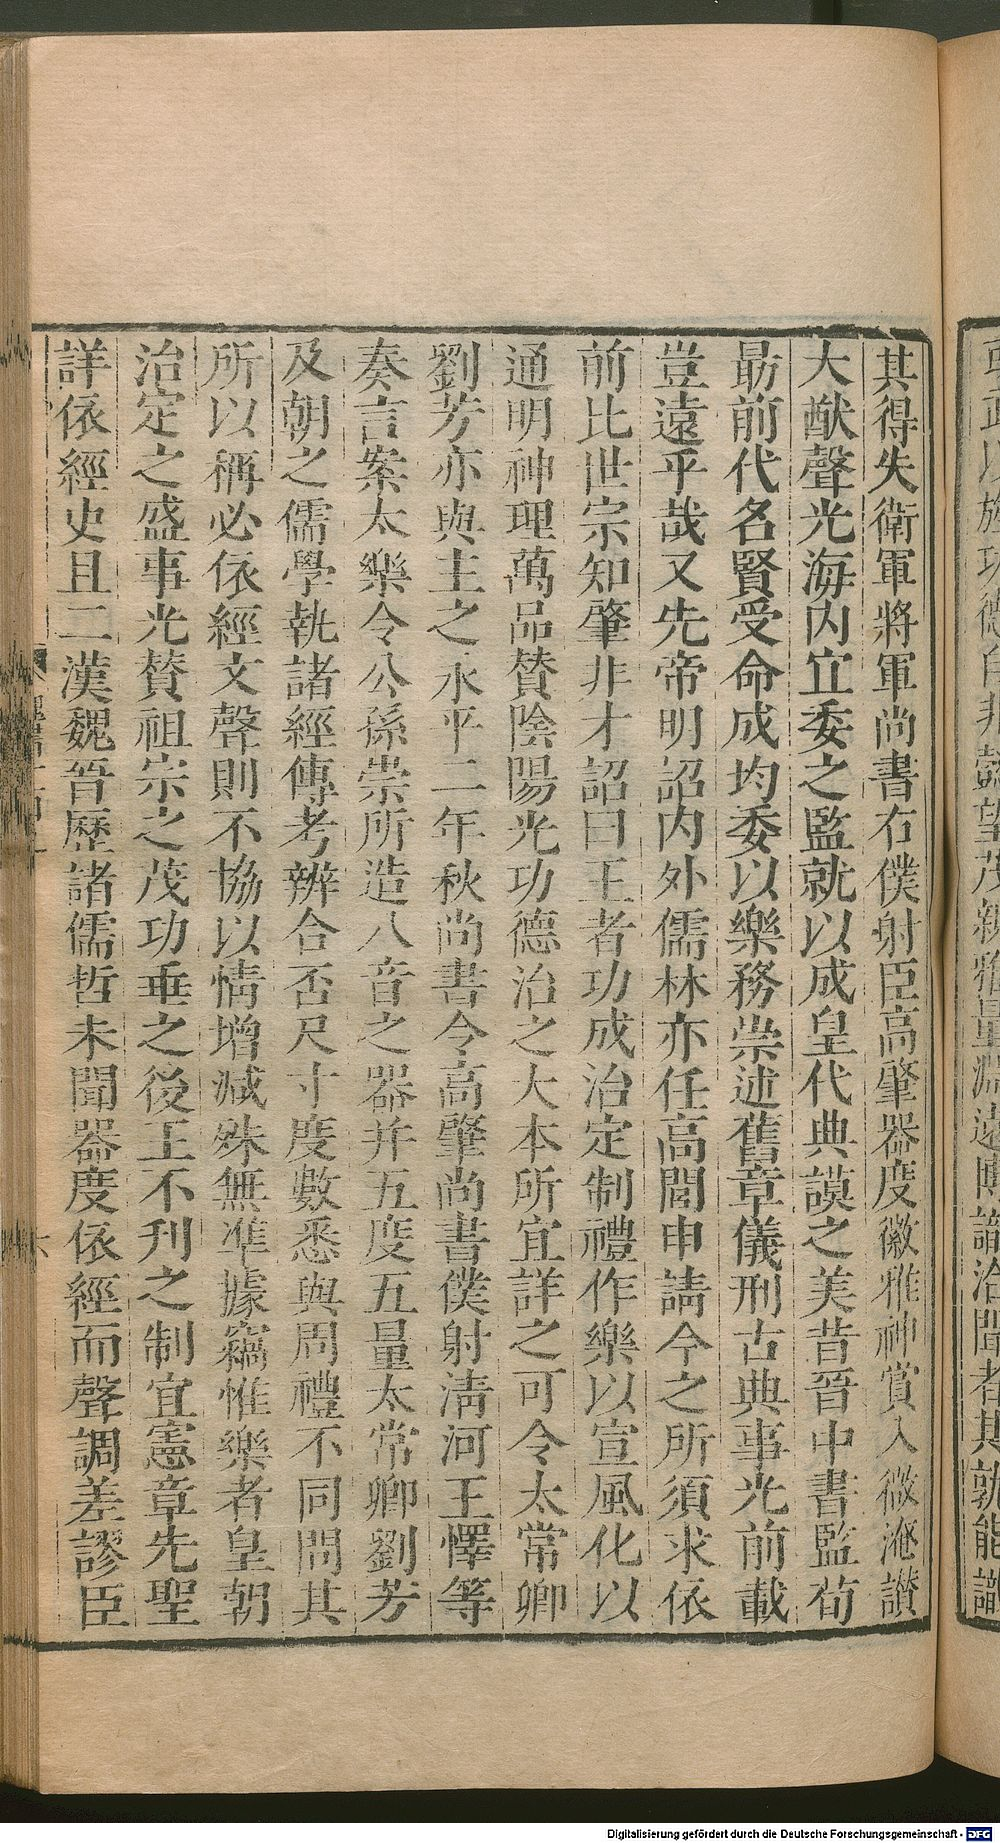 其得失衛軍將軍尚書右僕射臣高肇器度徽雅神賞入微淹讃
大猷聲光海内宜委之監就以成皇代典謨之美昔晉中書監荀
勗前代名賢受命成均委以樂務崇述舊章儀刑古典事光前載
豈遠乎哉又先帝明詔内外儒林亦任高閭申請今之所須求依
前比世宗知肇非才詔曰王者功成治定制禮作樂以宣風化以
通明神理萬品賛陰陽光功德治之大本所宜詳之可令太常卿
劉芳亦與主之永平二年秋尚書令高肇尚書僕射清河王懌等
奏言案太樂令公孫崇所造八音之器并五度五量太常卿劉芳
及朝之儒學執諸經傳考辨合否尺寸度數悉與周禮不同問其
所以稱必依經文聲則不協以情增减殊無準據竊惟樂者皇朝
治定之盛事光賛祖宗之茂功垂之後王不刋之制宜憲章先聖
詳依經史且二漢魏晉歴諸儒哲未聞器度依經而聲調差謬臣
Digitalisierung gefördert durch die Deutsche Forschungsgemeinschaft - DFG